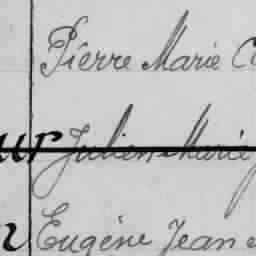 Pierre Marie
ur Julien Marie
Eugène Jean